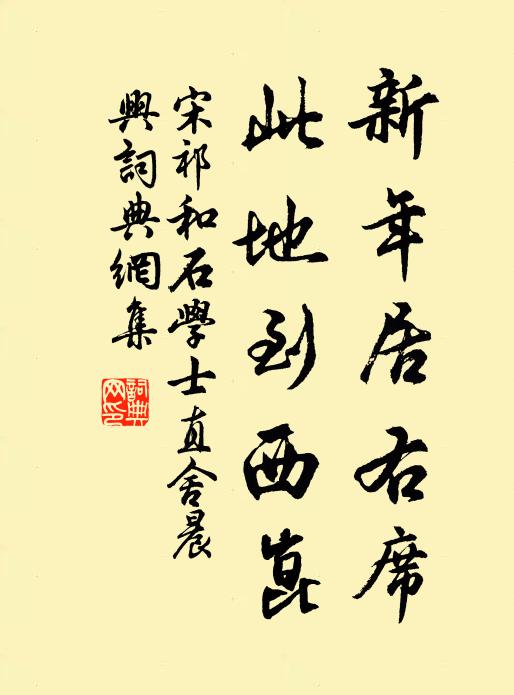 新年居右席
此地到西崑
宋祁和石學士直舍晨
興詞典網集
詞典網印